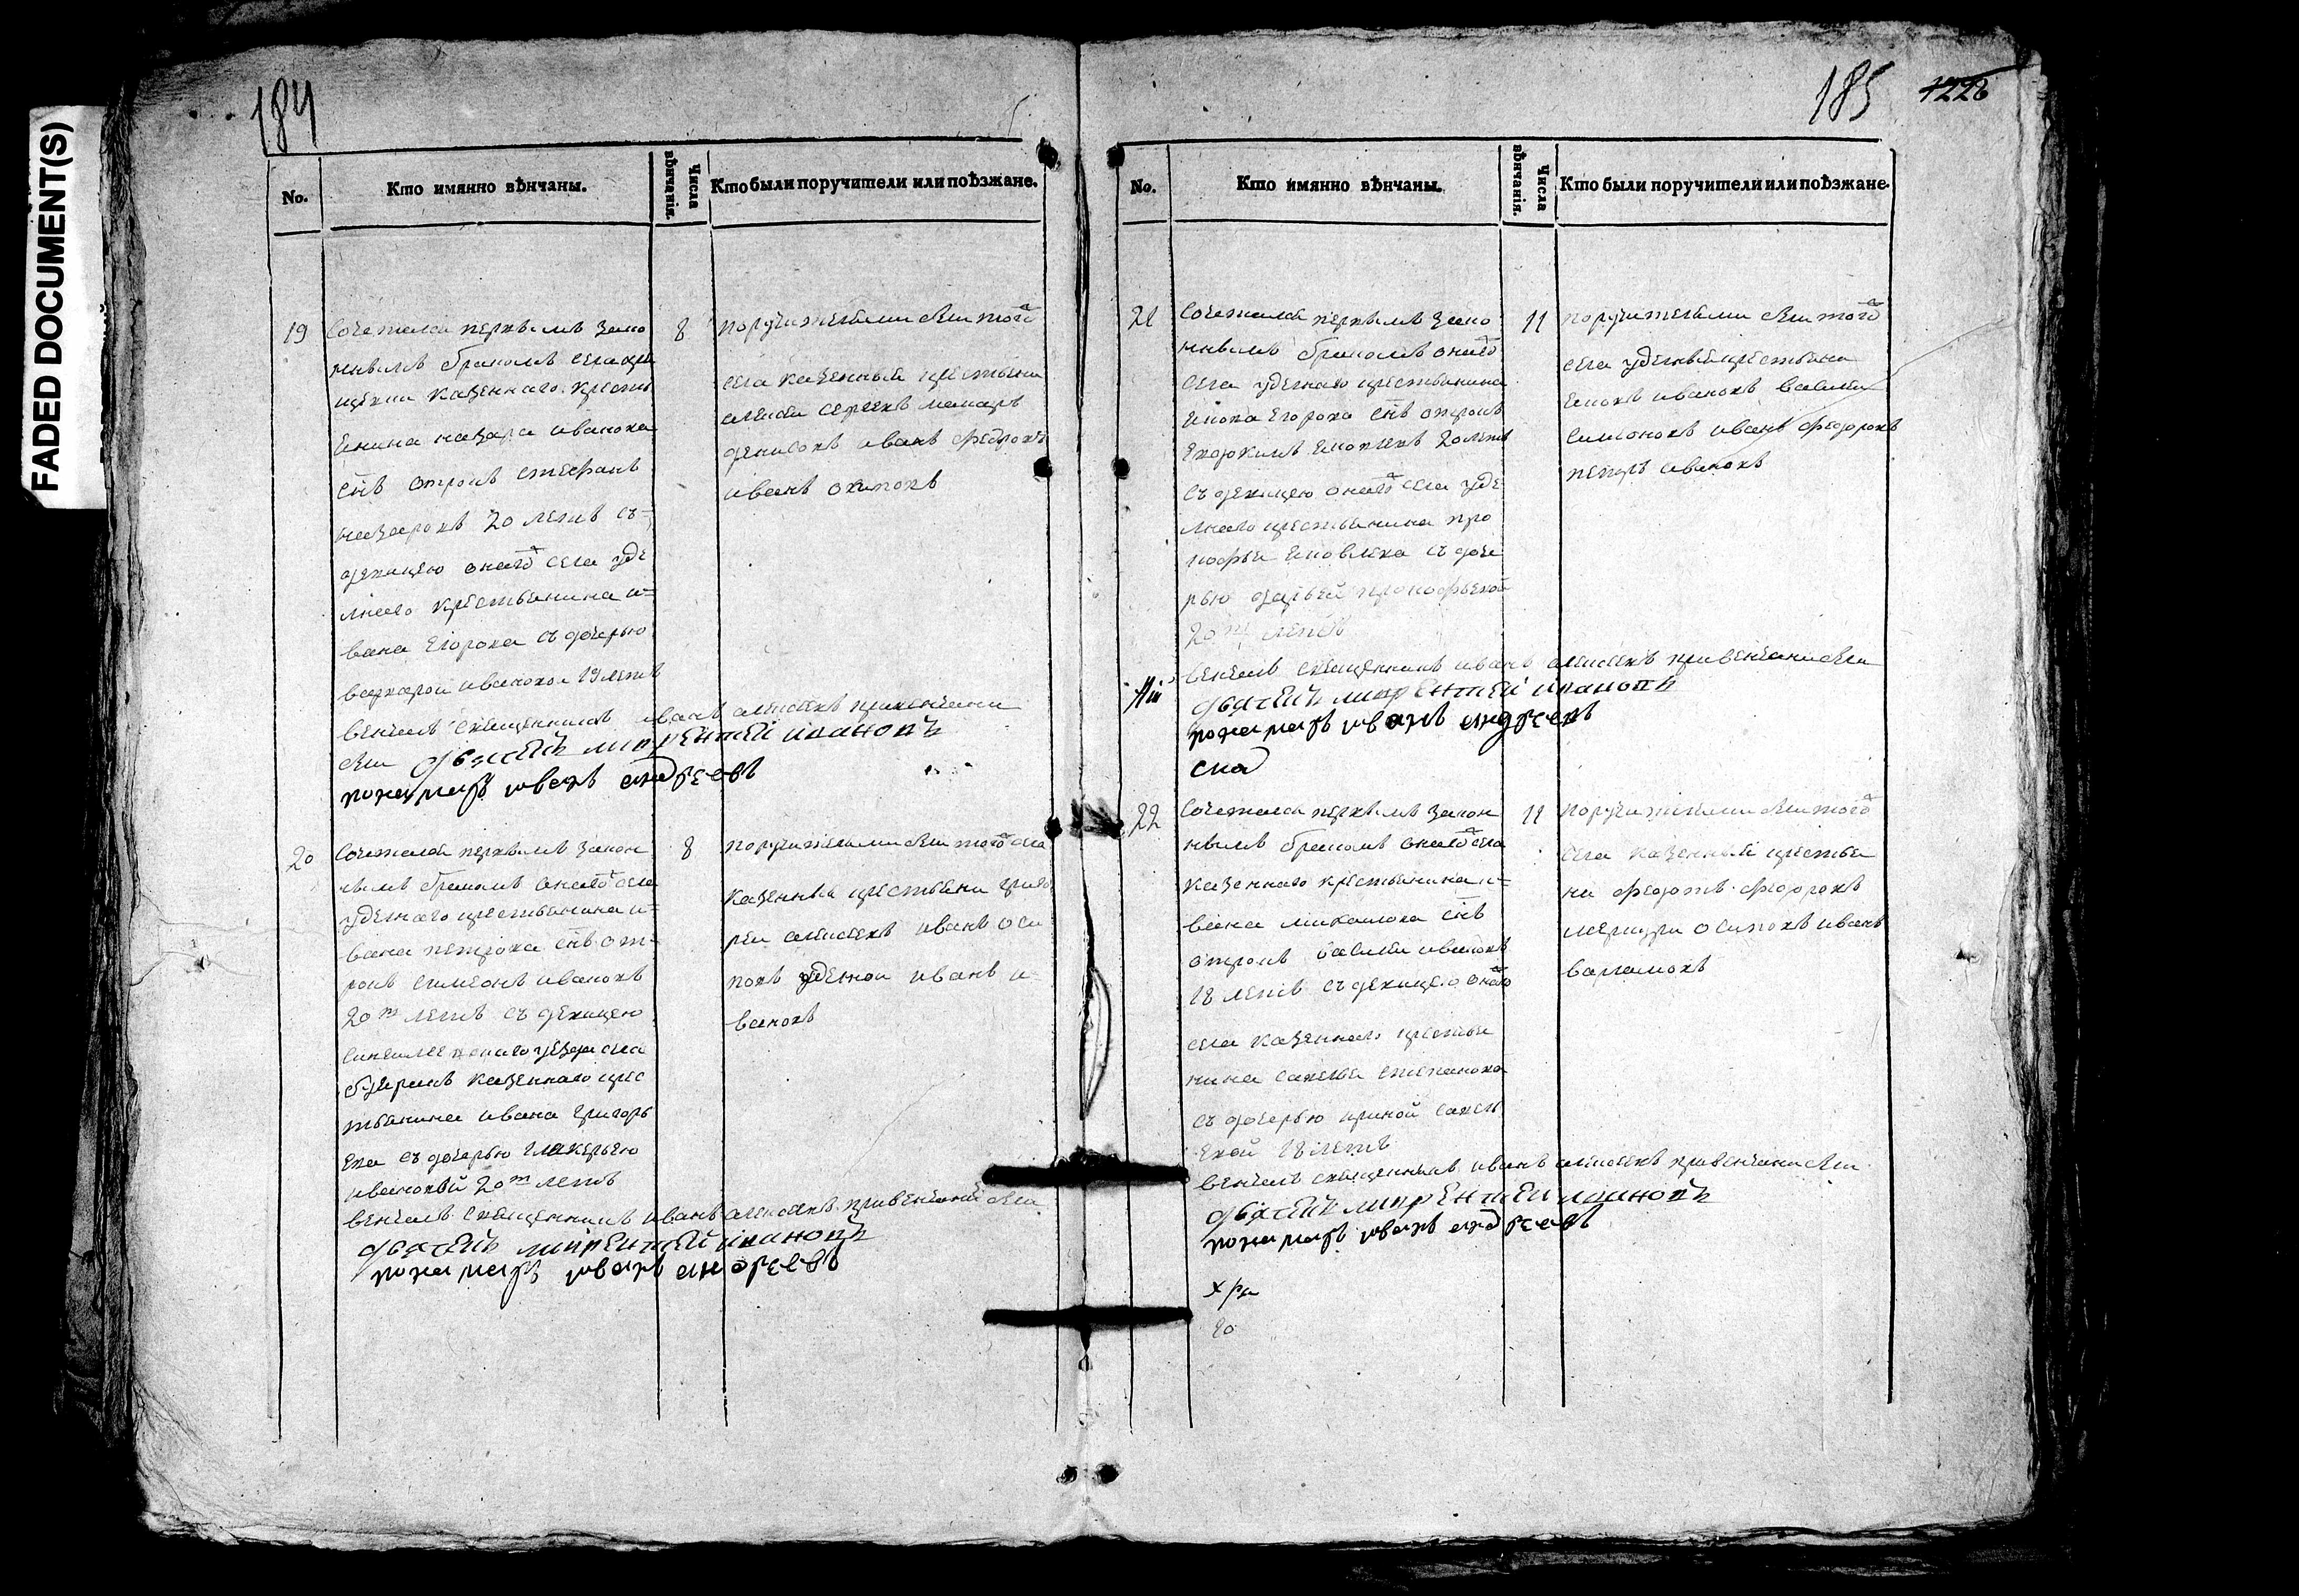 FADED DOCUMENT(S)
184
No.
Кто имянно вѣнчаны.
Числа вѣнчанія.
Кто были поручители или поѣзжане.
19
Сочетался первымъ зако
ннымъ бракомъ села
казеннаго кресть
енина назара иванова
снъ отрокъ стефанъ
назаровъ 20 летъ съ
девицею онаго села уде
лнаго крестьянина и=
вана Егорова съ дочерью
варварой ивановой 19 летъ
венчалъ священникъ иванъ алексѣевъ при венчани
были дьячекъ лаврентей ивановъ
понамарь иванъ андреевъ
8
поручителями были того
села казенныя крестьяни
алексеи сергеевъ макаръ
денисовъ иванъ федоровъ
иванъ осиповъ
20
Сочетался первымъ закон
нымъ бракомъ онаго села
уделнаго крестьянина и=
вана петрова снъ от=
рокъ симеонъ ивановъ
20т летъ съ девицею
уезда села
казеннаго крес
тьянина ивана григорь
ева съ дочерью гликерьею
ивановой 20т летъ
венчалъ священникъ иванъ алексеевъ при венчани были
дьячекъ лаврентей ивановъ
понамарь иванъ андреевъ
8
поручителями были того села
казенныя крестьяни григо
реи алексеевъ иванъ оси
повъ уделной иванъ и=
вановъ
185
1226
No.
Кто имянно вѣнчаны.
Числа вѣнчанія.
Кто были поручители или поѣзжане.
21
Сочетался первымъ зако
ннымъ бракомъ онаго
села уделнаго крестьянина
Егорова снъ отрокъ
20 летъ
съ девицею онаго села уде
лнаго крестьянина про
кофьи яковлева съ доче
рью дарьей прокофьевой
20т летъ
венчалъ священникъ иванъ алексеевъ при венчани были
дьячекъ лаврентей ивановъ
понамарь иванъ андреевъ
11
поручителями были того
села уделныя крестьяни
ивановъ васили
симеоновъ иванъ федоровъ
петръ ивановъ
22
Сочетался первымъ закон
нымъ бракомъ онаго села
казеннаго крестьянина и=
вана михаилова снъ
отрокъ васили ивановъ
18 летъ съ девицею онаго
села казеннаго крестья
нина савелья степанова
съ дочерью ириной савель
евой 18 летъ
венчалъ священникъ иванъ алексеевъ при венчани были
дьячекъ лаврентей ивановъ
понамарь иванъ андреевъ
11
поручителями были того
села казенныя крестья
ни федотъ федоровъ
осиповъ иванъ
варламовъ